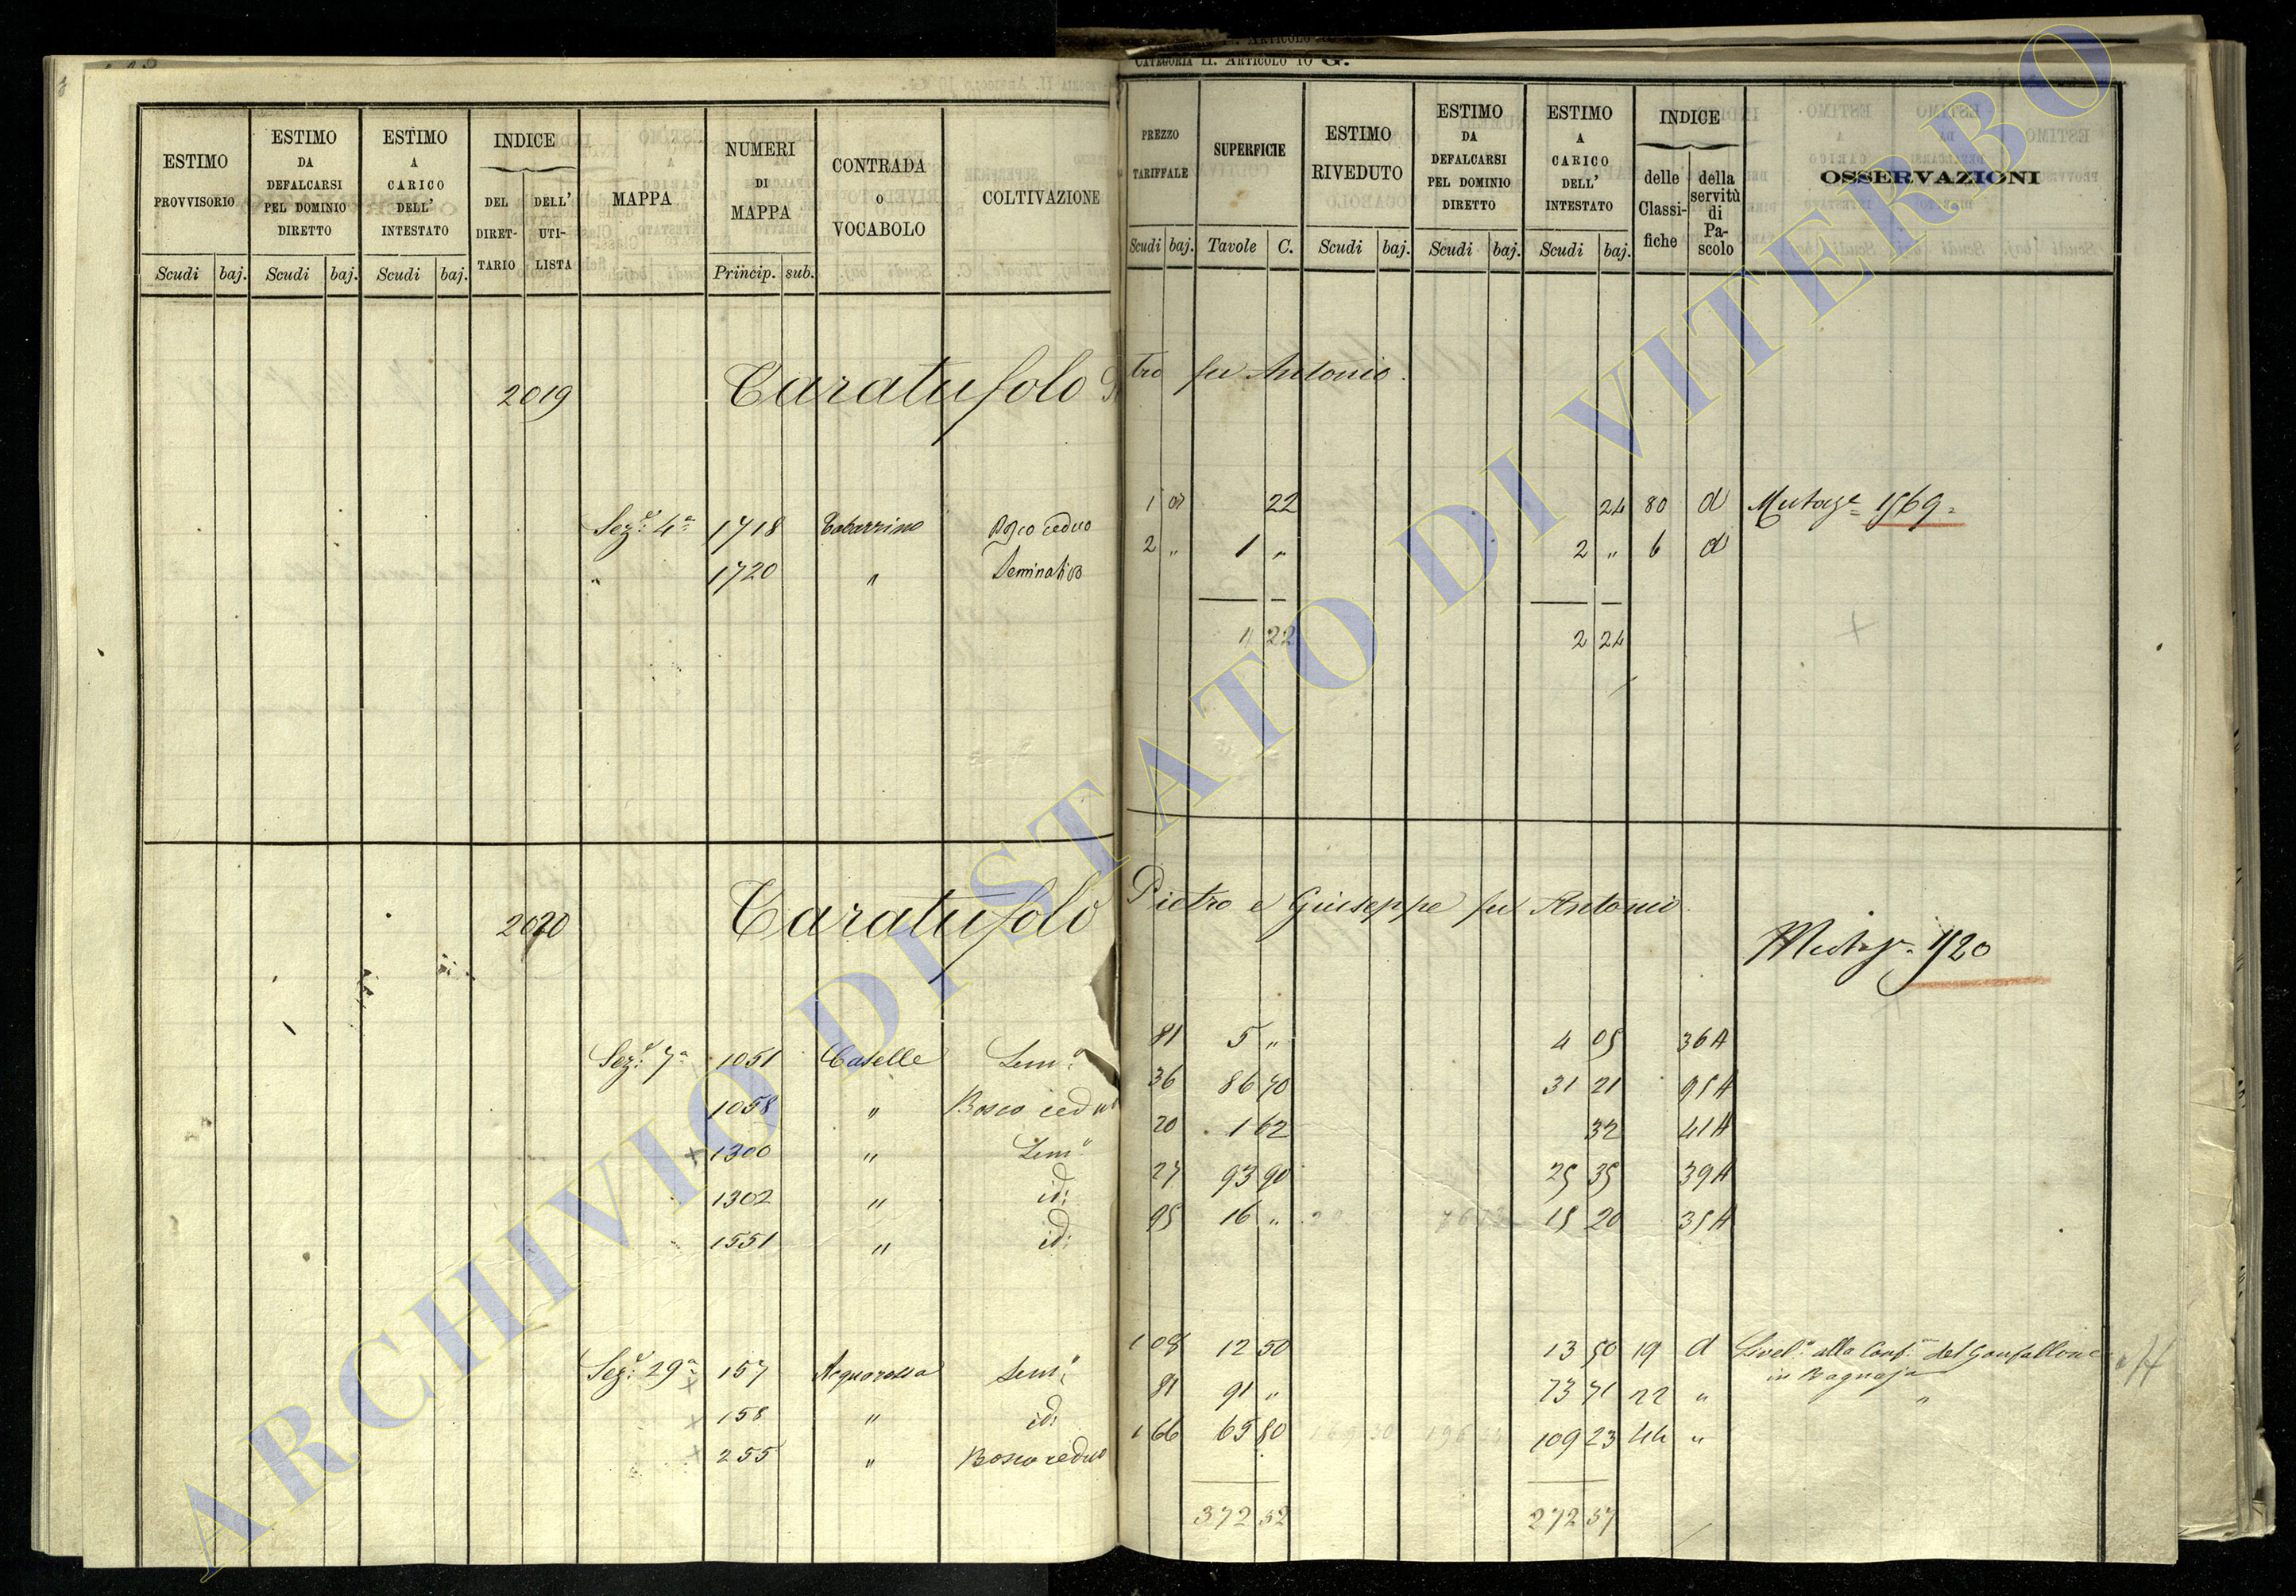 CATEGORIA II. ARTICOLO 10 G.
ESTIMO PROVVISORIO
ESTIMO DA DEFALCARSI PEL DOMINIO DIRETTO
ESTIMO A CARICO DELL' INTESTATO
INDICE
DEL DIRETTARIO
DELL' UTILISTA
MAPPA
NUMERI DI MAPPA
CONTRADA O VOCABOLO
COLTIVAZIONE
PREZZO TARIFFALE
SUPERFICIE
ESTIMO RIVEDUTO
ESTIMO DA DEFALCARSI PEL DOMINIO DIRETTO
ESTIMO A CARICO DELL' INTESTATO
INDICE
delle Classifiche
della servitù di Pascolo
OSSERVAZIONI
Scudi baj. Scudi baj. Scudi baj. Princip. sub. Scudi baj. Tavole C. Scudi baj. Scudi baj. Scudi baj.
2019 Caratufolo Pietro fu Antonio.
Sez.e 4a 1718 Tabarrino Bosco ceduo 1 22 24 80 d Mutaze 1569
" 1720 " Seminativo 2 " 1 " 2 " 6 d
1 22 2 24
2020 Caratufolo Pietro e Giuseppe fu Antonio
Sez.e 7a 1051 Caselle Sem.o 81 5 " 4 05 36 A
1058 " Bosco ceduo 36 86 70 31 21 95 A
1300 " Sem.o 20 1 62 32 41 A
1302 " id: 27 93 90 25 35 39 A
1551 " id: 95 16 " 15 20 35 A
Sez.e 29a 157 Acquarossa Sem.o 1 08 12 50 13 50 19 d Livel.o alla Conf.a del Gonfallone
in Bagnaja
158 " id: 81 91 " 73 71 22 " "
255 " Bosco ceduo 1 66 65 80 109 23 44 "
372 52 272 57
ARCHIVIO DI STATO DI VITERBO